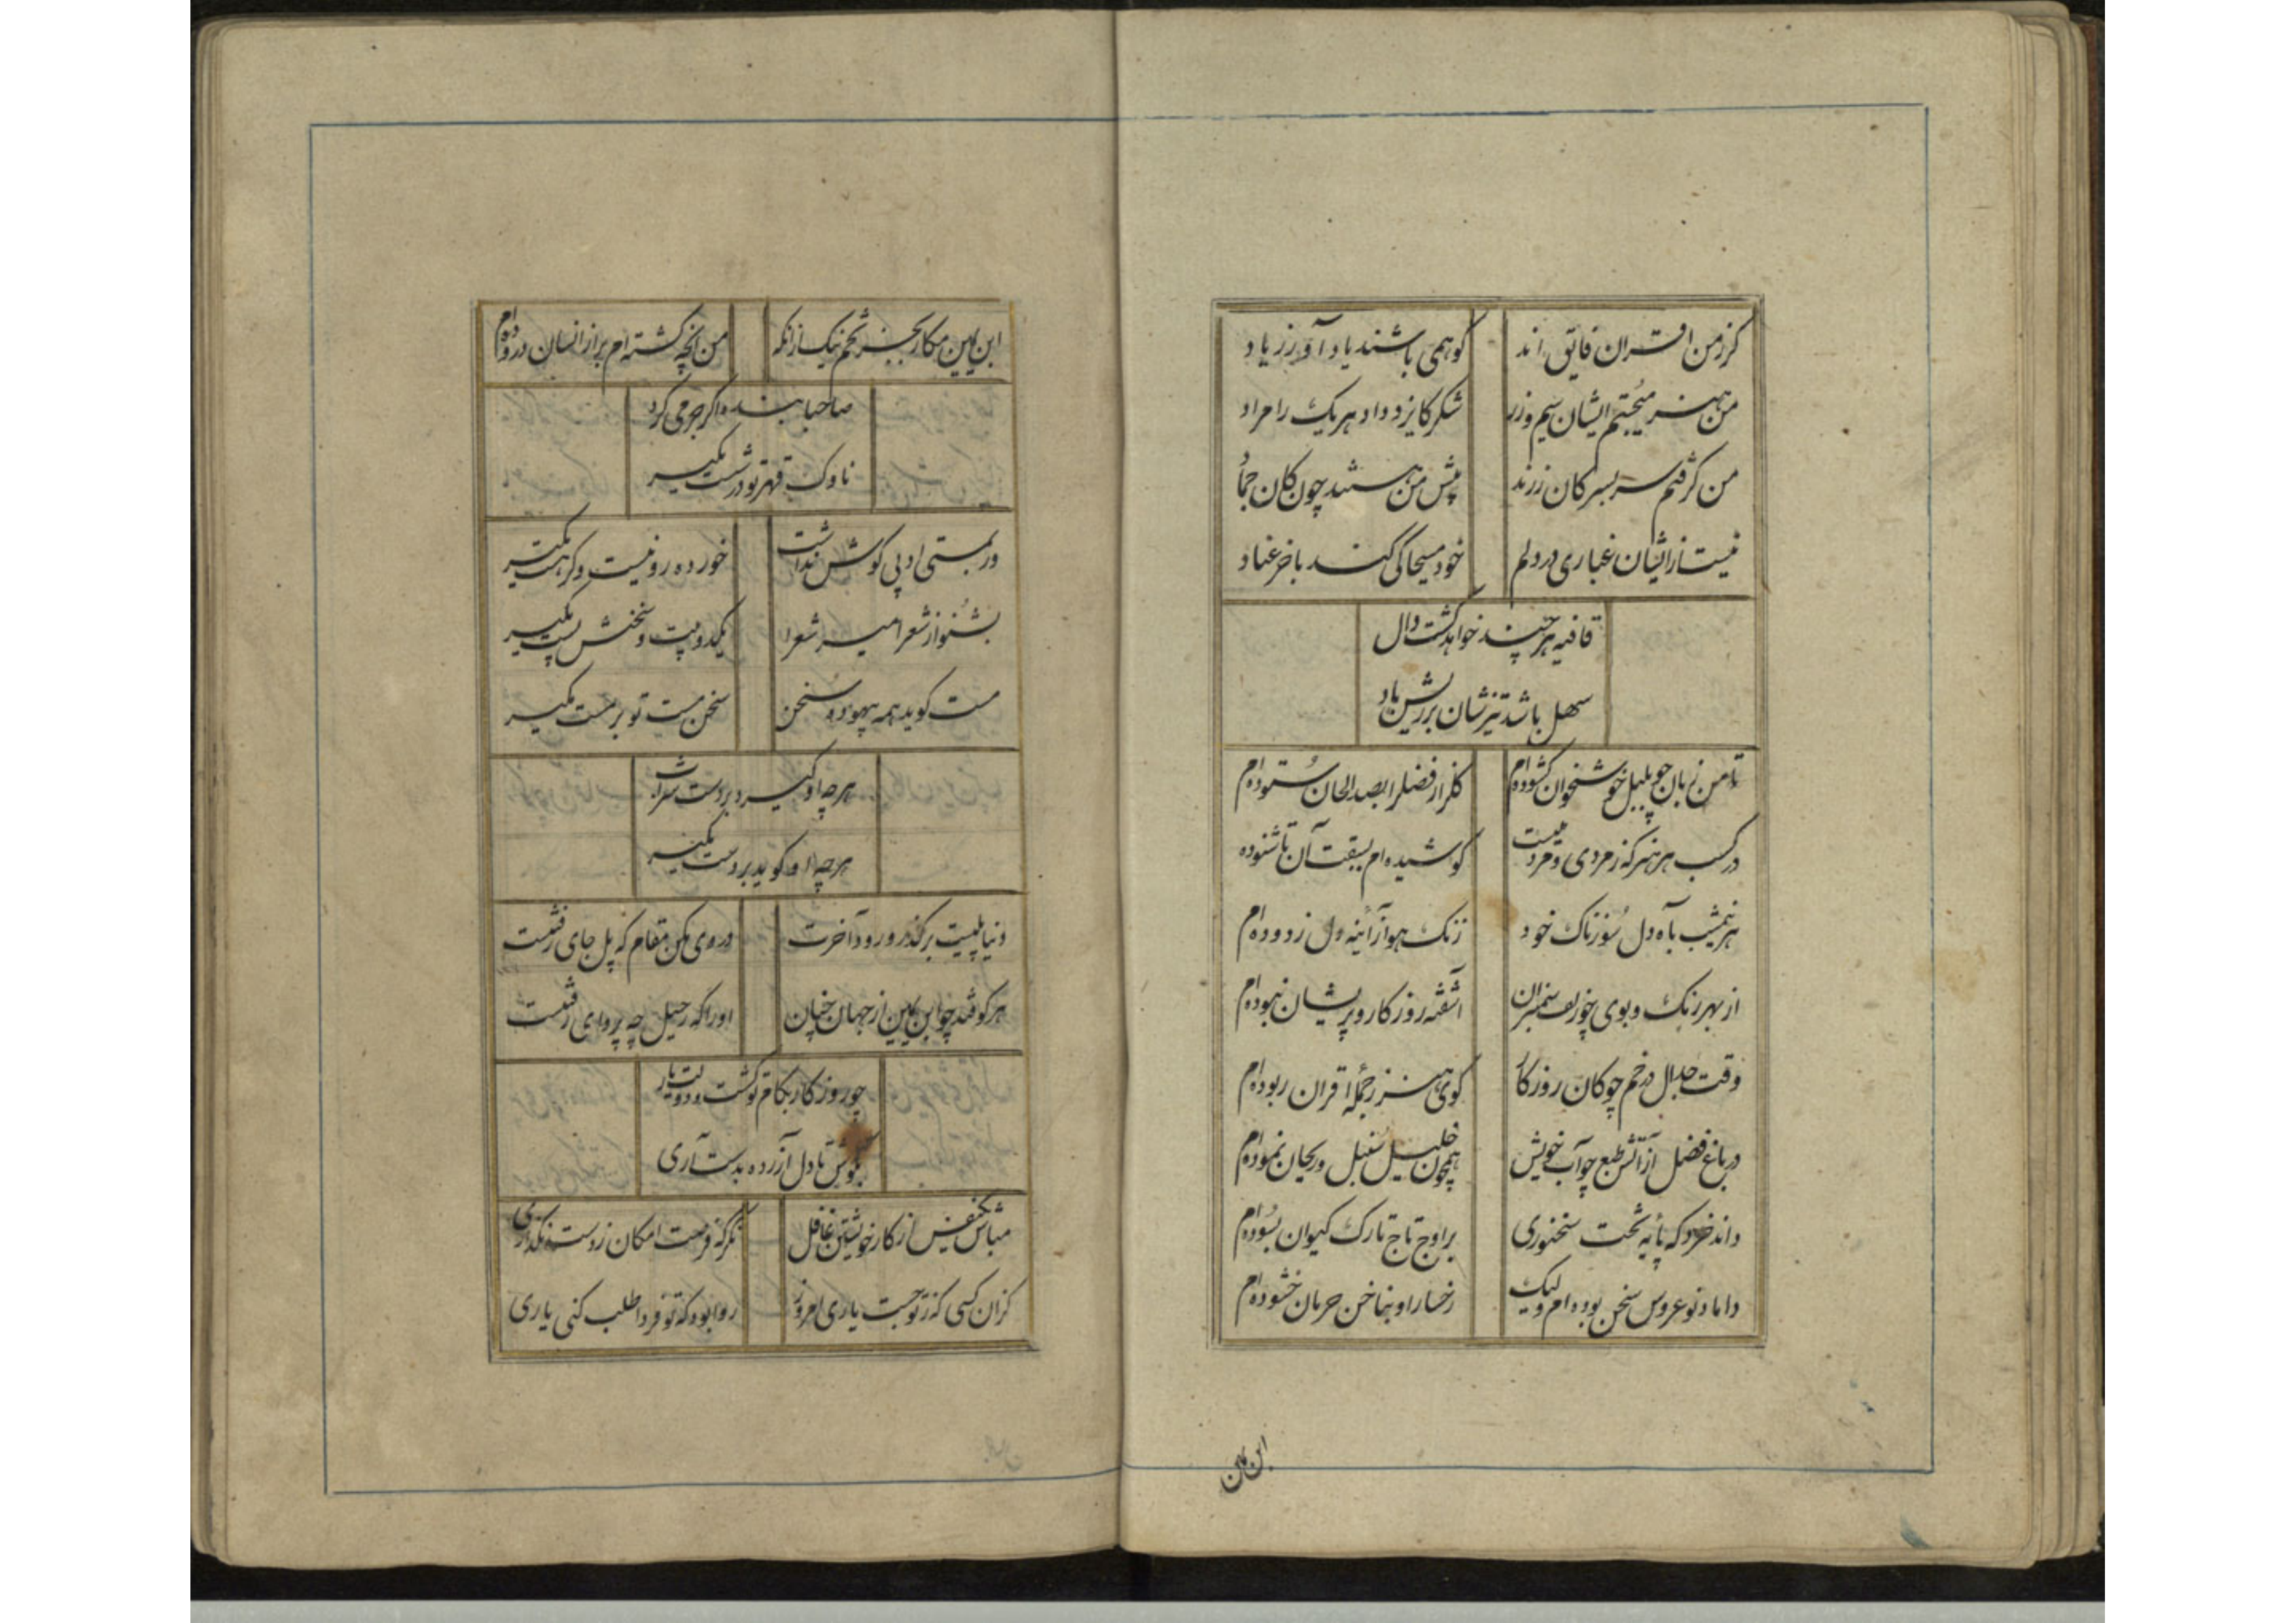 کرز من اقران فایق اند
کوهمی باشند یاد آور ز یاد
من هنر میجستم ایشان سیم و زر
شکر کایزد داد هر یک را مراد
من کرفتم سر بسر کان زرند
پیش من هستند چون کان جماد
نیست از ایشان غباری در دلم
خود مسیحا کی کند با خر عناد
قافیه هر چند خواهد کشت دال
سهل باشد تیزشان بر ریش باد
تا من زبان چو بلبل خوشخوان کشوده‌ام
کلزار فضل را بصد الحان ستوده‌ام
در کسب هر هنر که ز مردی و مردمیست
کوشیده‌ام بسبقت آن تا شنوده‌ام
هر نیمشب بآه دل سوزناک خود
زنک هوا ز آئینه دل زدوده‌ام
از بهر رنک و بوی چو زلف سمنبران
آشفته روزکار و پریشان نبوده‌ام
وقت جدال در خم چوکان روزکار
کوی هنر ز جمله اقران ربوده‌ام
در باغ فضل از آتش طبع چو آب خویش
همچون خلیل سنبل و ریحان نموده‌ام
داند خرد که پایه تخت سخنوری
بر اوج تاج تارک کیوان بسوده‌ام
داماد نو عروس سخن بوده‌ام ولیک
رخسار او بناخن حرمان خشوده‌ام
ابن یمین
ابن یمین مکار بجز تخم نیک از آنکه
من آنچه کشته‌ام بر از انسان دروده‌ام
صاحبا بنده اکر جرمی کرد
ناوک قهر تو در شست مکیر
ور بمستی ادبی کوش نداشت
خورده رو نیست و کر هست مکیر
بشنو از شعر امیر شعرا
یکدو بیت و سخنش پست مکیر
مست کوید همه بیهوده سخن
سخن مست تو بر مست مکیر
هرچه او کیرد بر دست شراب
هرچه او کوید بر دست مکیر
دنیا پلیست بر کذر ورود آخرت
در وی مکن مقام که پل جای رفتنست
هر کو فتد چو ابن یمین از جهان چنان
او را که رحیل چه پروای رفتنست
چو روزکار بکام تو کشت و دولت یار
بکوش تا دل آزرده بدست آری
مباش یکنفس از کار خویشتن غافل
نکر که فرصت امکان ز دست نکذاری
کزان کسی که ز تو جست یاری امروز
روا بود که تو فردا طلب کنی یاری